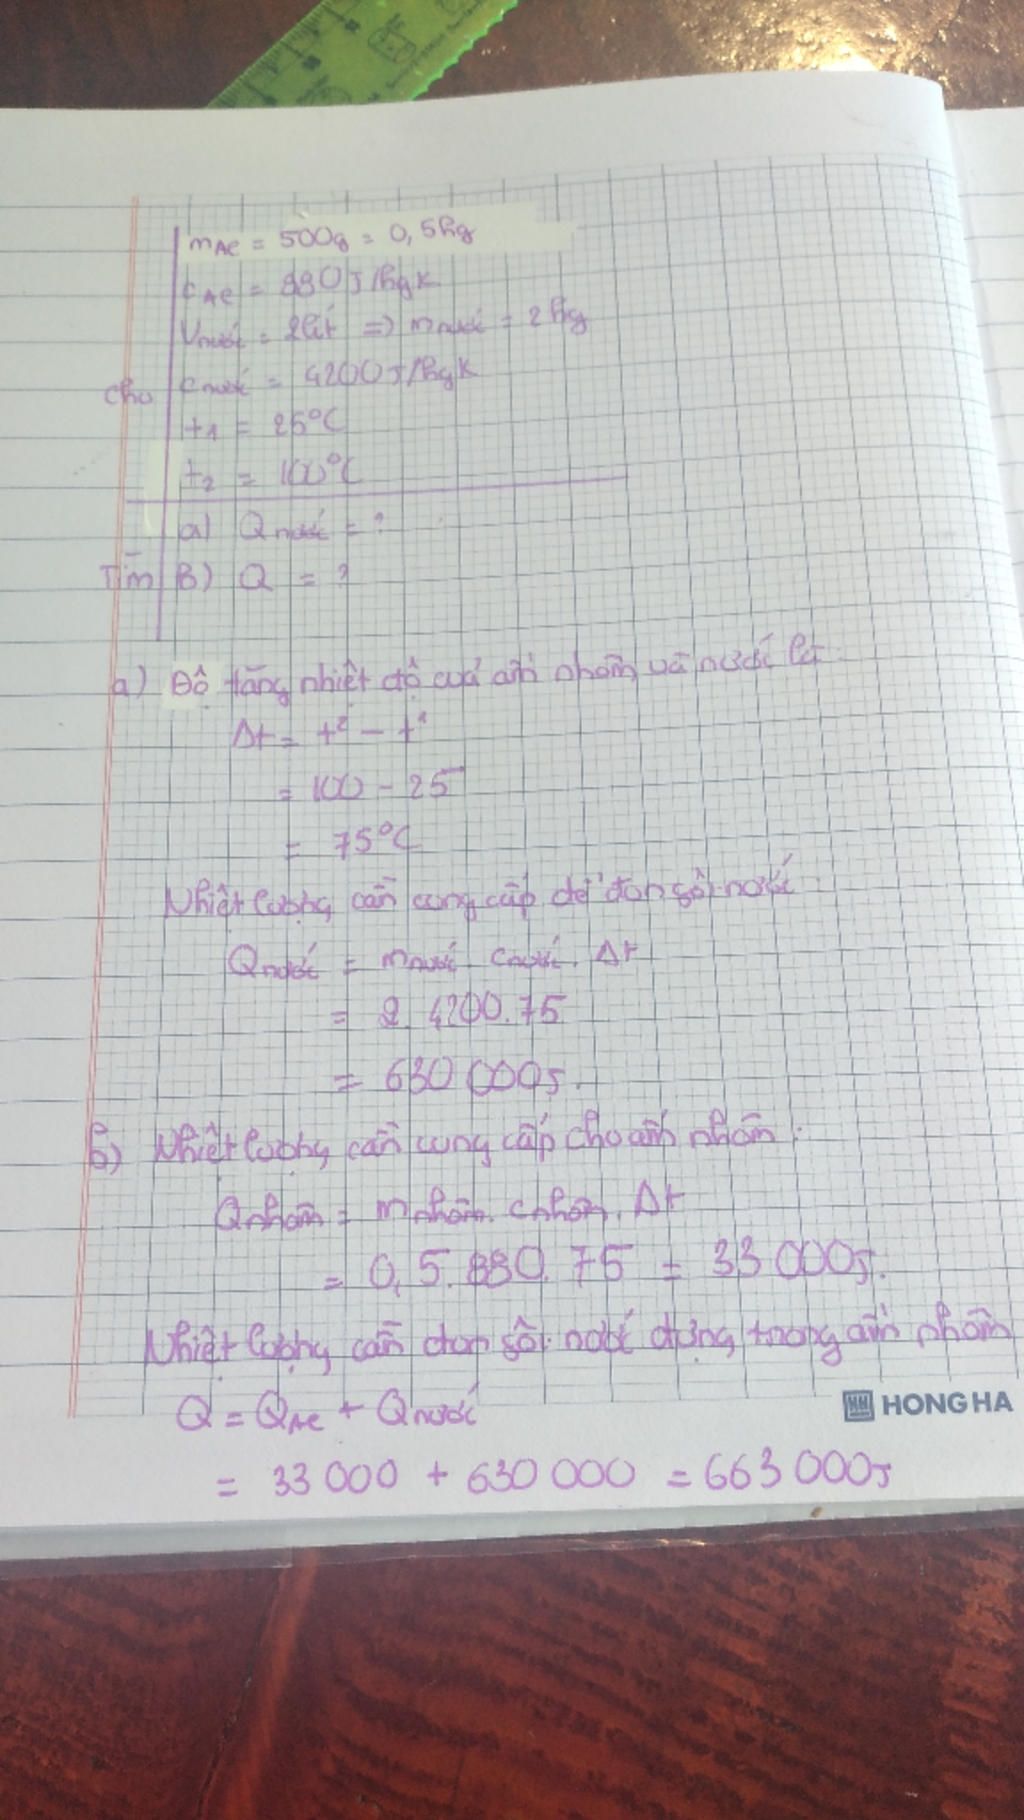 m Al = 500g = 0,5kg
c Al = 880J/kgK
Vnước = 2lít => mnước = 2kg
Cho cnước = 4200J/kgK
t1 = 25°C
t2 = 100°C
a) Qnước = ?
Tìm B) Q = ?
a) Độ tăng nhiệt độ của ấm nhôm và nước là:
Δt = t² - t¹
= 100 - 25
= 75°C
Nhiệt lượng cần cung cấp để đun sôi nước:
Qnước = mnước. cnước. Δt
= 2. 4200.75
= 630 000J.
b) Nhiệt lượng cần cung cấp cho ấm nhôm:
Qnhôm = mnhôm. cnhôm. Δt
= 0,5.880.75 = 33 000J.
Nhiệt lượng cần đun sôi nước đựng trong ấm nhôm
Q = QAl + Qnước
HONG HA
= 33 000 + 630 000 = 663 000J